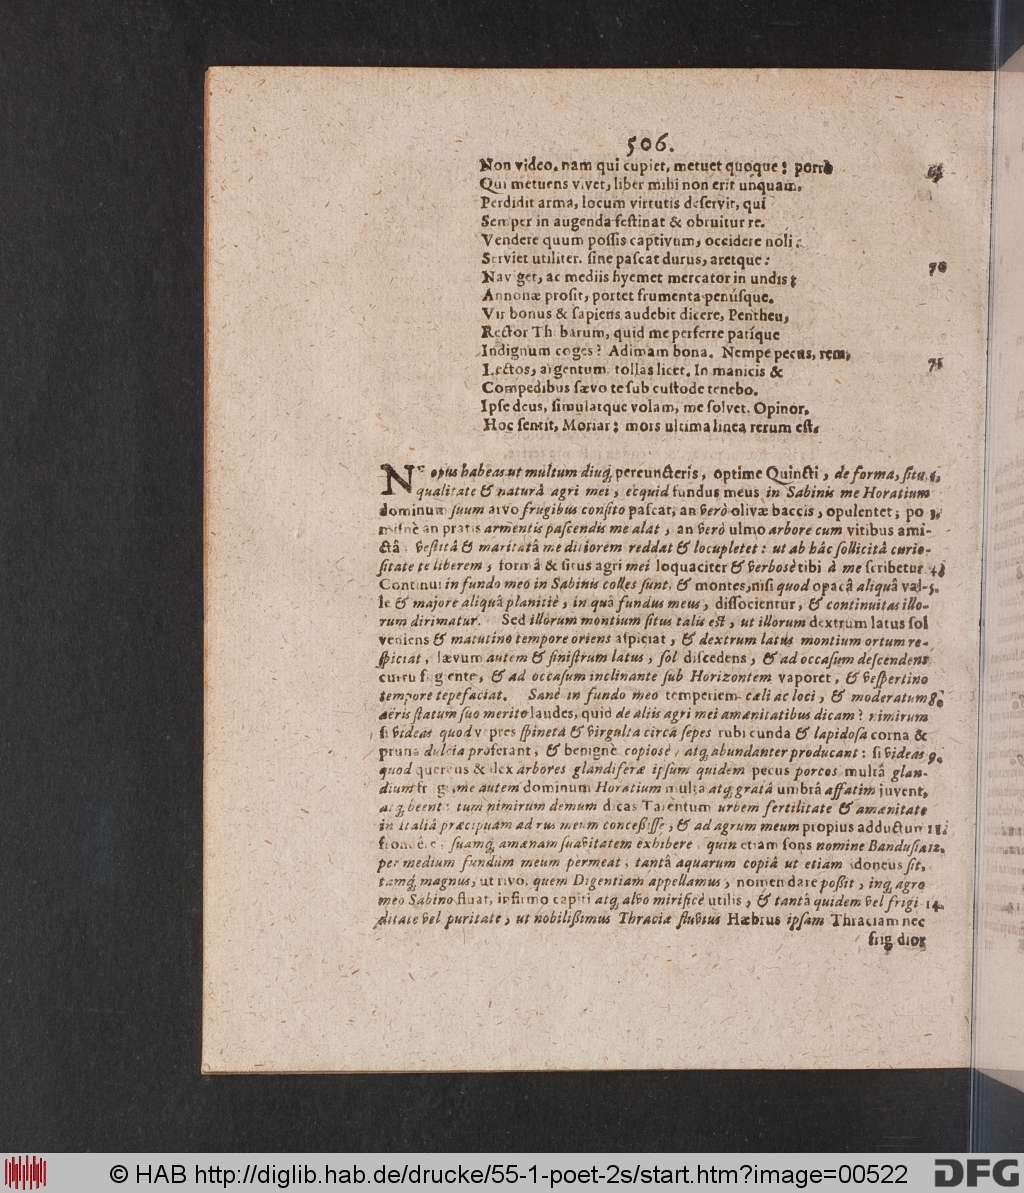 506.
Non video. nam qui cupiet, metuet quoque: porrò
Qui metuens vivet, liber mihi non erit unquam.
Perdidit arma, locum virtutis deservit, qui
Semper in augenda festinat & obruitur re.
Vendere quum possis captivum, occidere noli:
Serviet utiliter. sine pascat durus, aretque: 70
Naviget, ac mediis hyemet mercator in undis;
Annonæ prosit, portet frumenta penúsque.
Vir bonus & sapiens audebit dicere, Pentheu,
Rector Thebarum, quid me perferre patíque
Indignum coges? Adimam bona. Nempe pecus, rem,
Lectos, argentum. tollas licet. In manicis & 75
Compedibus sævo te sub custode tenebo.
Ipse deus, simulatque volam, me solvet. Opinor,
Hoc sentit, Moriar; mors ultima linea rerum est.
NE opus habeas ut multum diuq; percuncteris, optime Quincti, de forma, situ,
qualitate & naturâ agri mei, ecquid fundus meus in Sabinis me Horatium
dominum suum arvo frugibus consito pascat, an verò olivæ baccis, opulentet; po
misnè an pratis armentis pascendis me alat, an verò ulmo arbore cum vitibus ami-
ctâ, vestitâ & maritatâ me ditiorem reddat & locupletet: ut ab hâc sollicitâ curio-
sitate te liberem, forma & situs agri mei loquaciter & verbosè tibi à me scribetur. 4.
Continui in fundo meo in Sabinis colles sunt, & montes, nisi quod opacâ aliquâ val- 5.
le & majore aliquâ planitiè, in quâ fundus meus, dissocientur, & continuitas illo-
rum dirimatur. Sed illorum montium situs talis est, ut illorum dextrum latus sol
veniens & matutino tempore oriens aspiciat, & dextrum latus montium ortum re-
spiciat, lævum autem & sinistrum latus, sol discedens, & ad occasum descendens
curru fugiente, & ad occasum inclinante sub Horizontem vaporet, & vespertino
tempore tepefaciat. Sanè in fundo meo temperiem cæli ac loci, & moderatum 8.
aëris statum suo merito laudes, quid de aliis agri mei amœnitatibus dicam? nimirum
si videas quod vepres spineta & virgulta circà sepes rubicunda & lapidosa corna &
pruna dulcia proferant, & benignè copiosè, atq; abundanter producant: si videas 9.
quod quercus & ilex arbores glandiferæ ipsum quidem pecus porcos multâ glan-
dium fruge, me autem dominum Horatium multa atq; gratâ umbrâ affatim juvent,
atq; beent: tum nimirum demum dicas Tarentum urbem fertilitate & amœnitate
in Italiâ præcipuam ad rus meum concessisse, & ad agrum meum propius adductum 11.
frondere, suamq; amœnam suavitatem exhibere. quin etiam fons nomine Bandusia 12.
per medium fundum meum permeat, tantâ aquarum copiâ ut etiam idoneus sit,
tamq; magnus, ut rivo, quem Digentiam appellamus, nomen dare possit, inq; agro
meo Sabino fluat, infirmo capiti atq; alvo mirificè utilis, & tantâ quidem vel frigi 14.
ditate vel puritate, ut nobilissimus Thraciæ fluvius Hæbrus ipsam Thraciam nec
frigidior
© HAB http://diglib.hab.de/drucke/55-1-poet-2s/start.htm?image=00522
DFG